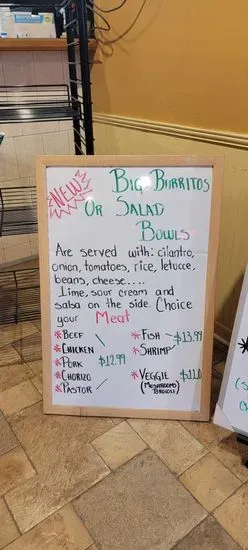 NEW
BIG BURRITOS
OR SALAD
BOWLS
Are served with: cilantro,
onion, tomatoes, rice, letucce,
beans, cheese....
Lime, sour cream and
salsa on the side. Choice
your Meat
*BEEF
*CHICKEN
*PORK $12.99
*CHORIZO
*PASTOR
*FISH $13.99
*SHRIMP
*VEGGIE
(MUSHROOMS